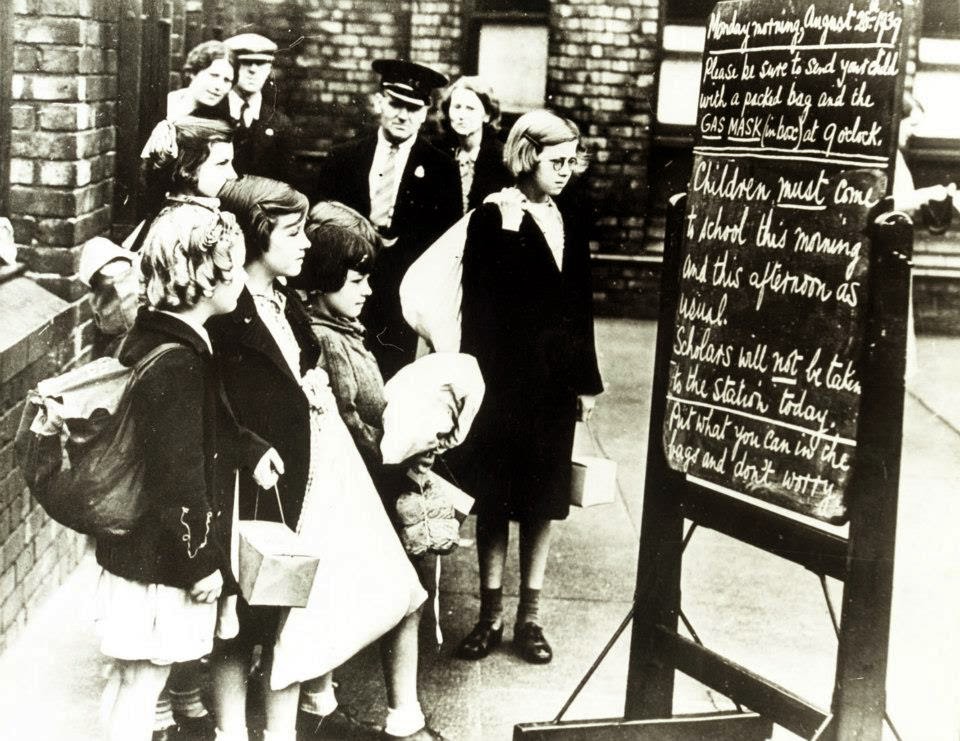 Monday morning, August 28th 1939
Please be sure to send your child
with a packed bag and the
GAS MASK (in box) at 9 o'clock.
Children must come
to school this morning
and this afternoon as
usual.
Scholars will not be taken
to the station today.
Put what you can in the
bags and don't worry